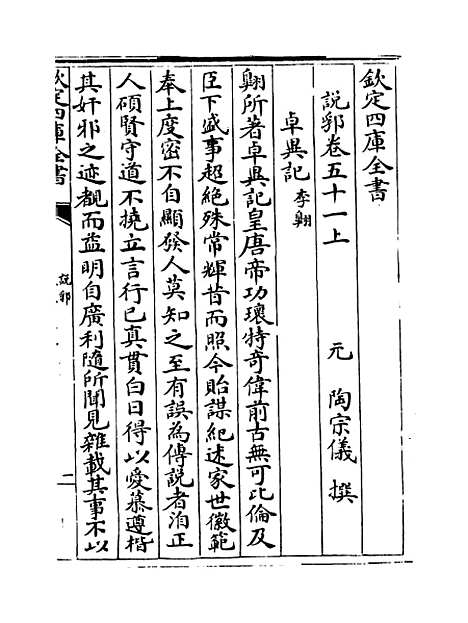 欽定四庫全書
說郛卷五十一上
元 陶宗儀 撰
卓異記 李翺
翺所著卓異記皇唐帝功瓌特奇偉前古無可比倫及
臣下盛事超絶殊常輝昔而照今貽謀紀述家世徽範
奉上度密不自顯發人莫知之至有誤為傳說者洎正
人碩賢守道不撓立言行已真貫白日得以愛慕遵楷
其奸邪之迹覩而益明自廣利隨所聞見雜載其事不以
欽定四庫全書
說郛